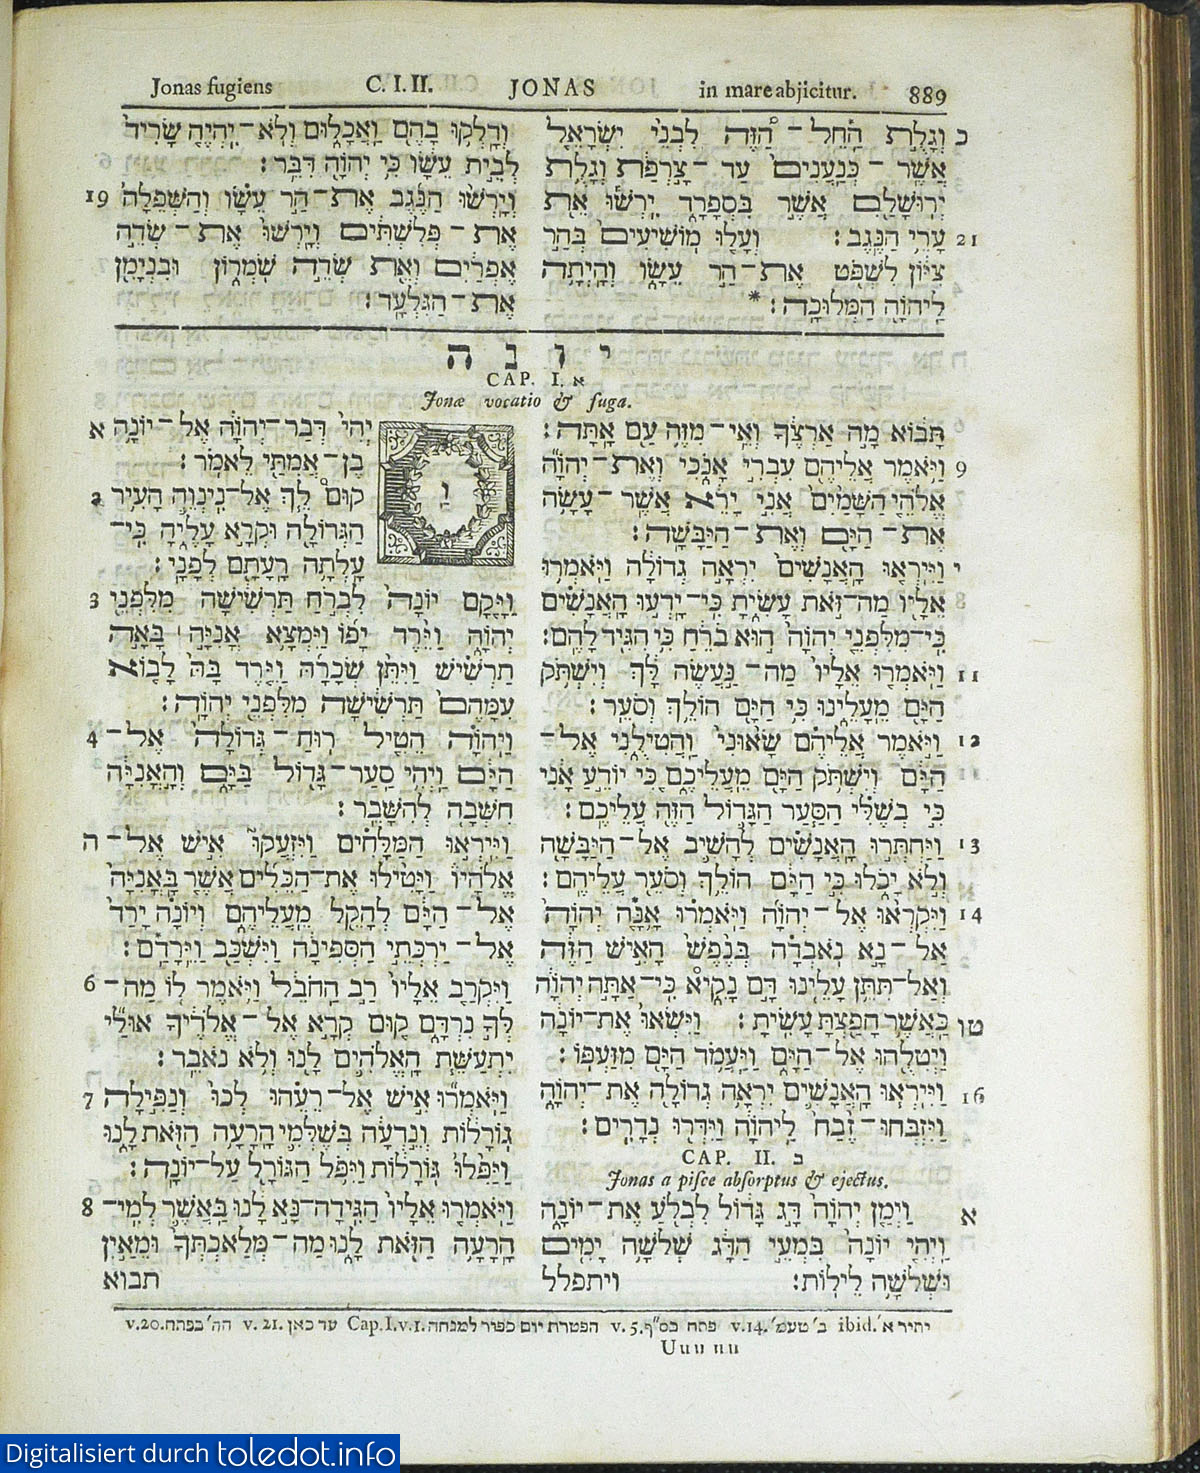 Jonas fugiens C. I. II. JONAS in mare abjicitur. 889
וְדָלְקוּ בָהֶם וַאֲכָלוּם וְלֹא־יִהְיֶה שָׂרִיד
לְבֵית עֵשָׂו כִּי יְהוָֹה דִּבֵּר׃
19 וְיָרְשׁוּ הַנֶּגֶב אֶת־הַר עֵשָׂו וְהַשְּׁפֵלָה
אֶת־פְּלִשְׁתִּים וְיָרְשׁוּ אֶת־שְׂדֵה
אֶפְרַיִם וְאֵת שְׂדֵה שֹׁמְרוֹן וּבִנְיָמִן
אֶת־הַגִּלְעָד׃
כ וְגָלֻת הַחֵל־הַזֶּה לִבְנֵי יִשְׂרָאֵל
אֲשֶׁר־כְּנַעֲנִים עַד־צָרְפַת וְגָלֻת
יְרוּשָׁלִַם אֲשֶׁר בִּסְפָרָד יִרְשׁוּ אֵת
21 עָרֵי הַנֶּגֶב׃ וְעָלוּ מוֹשִׁיעִים בְּהַר
צִיּוֹן לִשְׁפֹּט אֶת־הַר עֵשָׂו וְהָיְתָה
לַיהוָֹה הַמְּלוּכָה׃ *
יונה
CAP. I. א
Jonæ vocatio & fuga.
א וַיְהִי דְּבַר־יְהוָֹה אֶל־יוֹנָה
בֶן־אֲמִתַּי לֵאמֹר׃
2 קוּם לֵךְ אֶל־נִינְוֵה הָעִיר
הַגְּדוֹלָה וּקְרָא עָלֶיהָ כִּי־
עָלְתָה רָעָתָם לְפָנָי׃
3 וַיָּקָם יוֹנָה לִבְרֹחַ תַּרְשִׁישָׁה מִלִּפְנֵי
יְהוָֹה וַיֵּרֶד יָפוֹ וַיִּמְצָא אֳנִיָּה ׀ בָּאָה
תַרְשִׁישׁ וַיִּתֵּן שְׂכָרָהּ וַיֵּרֶד בָּהּ לָבוֹא
עִמָּהֶם תַּרְשִׁישָׁה מִלִּפְנֵי יְהוָֹה׃
4 וַיהוָֹה הֵטִיל רוּחַ־גְּדוֹלָה אֶל־
הַיָּם וַיְהִי סַעַר־גָּדוֹל בַּיָּם וְהָאֳנִיָּה
חִשְּׁבָה לְהִשָּׁבֵר׃
ה וַיִּירְאוּ הַמַּלָּחִים וַיִּזְעֲקוּ אִישׁ אֶל־
אֱלֹהָיו וַיָּטִילוּ אֶת־הַכֵּלִים אֲשֶׁר בָּאֳנִיָּה
אֶל־הַיָּם לְהָקֵל מֵעֲלֵיהֶם וְיוֹנָה יָרַד
אֶל־יַרְכְּתֵי הַסְּפִינָה וַיִּשְׁכַּב וַיֵּרָדַם׃
6 וַיִּקְרַב אֵלָיו רַב הַחֹבֵל וַיֹּאמֶר לוֹ מַה־
לְּךָ נִרְדָּם קוּם קְרָא אֶל־אֱלֹהֶיךָ אוּלַי
יִתְעַשֵּׁת הָאֱלֹהִים לָנוּ וְלֹא נֹאבֵד׃
7 וַיֹּאמְרוּ אִישׁ אֶל־רֵעֵהוּ לְכוּ וְנַפִּילָה
גוֹרָלוֹת וְנֵדְעָה בְּשֶׁלְּמִי הָרָעָה הַזֹּאת לָנוּ
וַיַּפִּלוּ גּוֹרָלוֹת וַיִּפֹּל הַגּוֹרָל עַל־יוֹנָה׃
8 וַיֹּאמְרוּ אֵלָיו הַגִּידָה־נָּא לָנוּ בַּאֲשֶׁר לְמִי־
הָרָעָה הַזֹּאת לָנוּ מַה־מְּלַאכְתְּךָ וּמֵאַיִן
תבוא
תָּבוֹא מָה אַרְצֶךָ וְאֵי־מִזֶּה עַם אָתָּה׃
9 וַיֹּאמֶר אֲלֵיהֶם עִבְרִי אָנֹכִי וְאֶת־יְהוָֹה
אֱלֹהֵי הַשָּׁמַיִם אֲנִי יָרֵא אֲשֶׁר־עָשָׂה
אֶת־הַיָּם וְאֶת־הַיַּבָּשָׁה׃
י וַיִּירְאוּ הָאֲנָשִׁים יִרְאָה גְדוֹלָה וַיֹּאמְרוּ
אֵלָיו מַה־זֹּאת עָשִׂיתָ כִּי־יָדְעוּ הָאֲנָשִׁים
כִּי־מִלִּפְנֵי יְהוָֹה הוּא בֹרֵחַ כִּי הִגִּיד לָהֶם׃
11 וַיֹּאמְרוּ אֵלָיו מַה־נַּעֲשֶׂה לָּךְ וְיִשְׁתֹּק
הַיָּם מֵעָלֵינוּ כִּי הַיָּם הוֹלֵךְ וְסֹעֵר׃
12 וַיֹּאמֶר אֲלֵיהֶם שָׂאוּנִי וַהֲטִילֻנִי אֶל־
הַיָּם וְיִשְׁתֹּק הַיָּם מֵעֲלֵיכֶם כִּי יוֹדֵעַ אָנִי
כִּי בְשֶׁלִּי הַסַּעַר הַגָּדוֹל הַזֶּה עֲלֵיכֶם׃
13 וַיַּחְתְּרוּ הָאֲנָשִׁים לְהָשִׁיב אֶל־הַיַּבָּשָׁה
וְלֹא יָכֹלוּ כִּי הַיָּם הוֹלֵךְ וְסֹעֵר עֲלֵיהֶם׃
14 וַיִּקְרְאוּ אֶל־יְהוָֹה וַיֹּאמְרוּ אָנָּה יְהוָֹה
אַל־נָא נֹאבְדָה בְּנֶפֶשׁ הָאִישׁ הַזֶּה
וְאַל־תִּתֵּן עָלֵינוּ דָּם נָקִיא כִּי־אַתָּה יְהוָֹה
טו כַּאֲשֶׁר חָפַצְתָּ עָשִׂיתָ׃ וַיִּשְׂאוּ אֶת־יוֹנָה
וַיְטִלֻהוּ אֶל־הַיָּם וַיַּעֲמֹד הַיָּם מִזַּעְפּוֹ׃
16 וַיִּירְאוּ הָאֲנָשִׁים יִרְאָה גְדוֹלָה אֶת־יְהוָֹה
וַיִּזְבְּחוּ־זֶבַח לַיהוָֹה וַיִּדְּרוּ נְדָרִים׃
CAP. II. ב
Jonas a pisce absorptus & ejectus.
א וַיְמַן יְהוָֹה דָּג גָּדוֹל לִבְלֹעַ אֶת־יוֹנָה
וַיְהִי יוֹנָה בִּמְעֵי הַדָּג שְׁלֹשָׁה יָמִים
וּשְׁלֹשָׁה לֵילוֹת׃ ויתפלל
v.20. הה' בפתח v. 21. עד כאן Cap.I.v.1. הפטרת יום כפור למנחה v. 5. פתח בס"ף v.14. ב' טעמ' ibid. יתיר א'
Uuu uu
Digitalisiert durch toledot.info